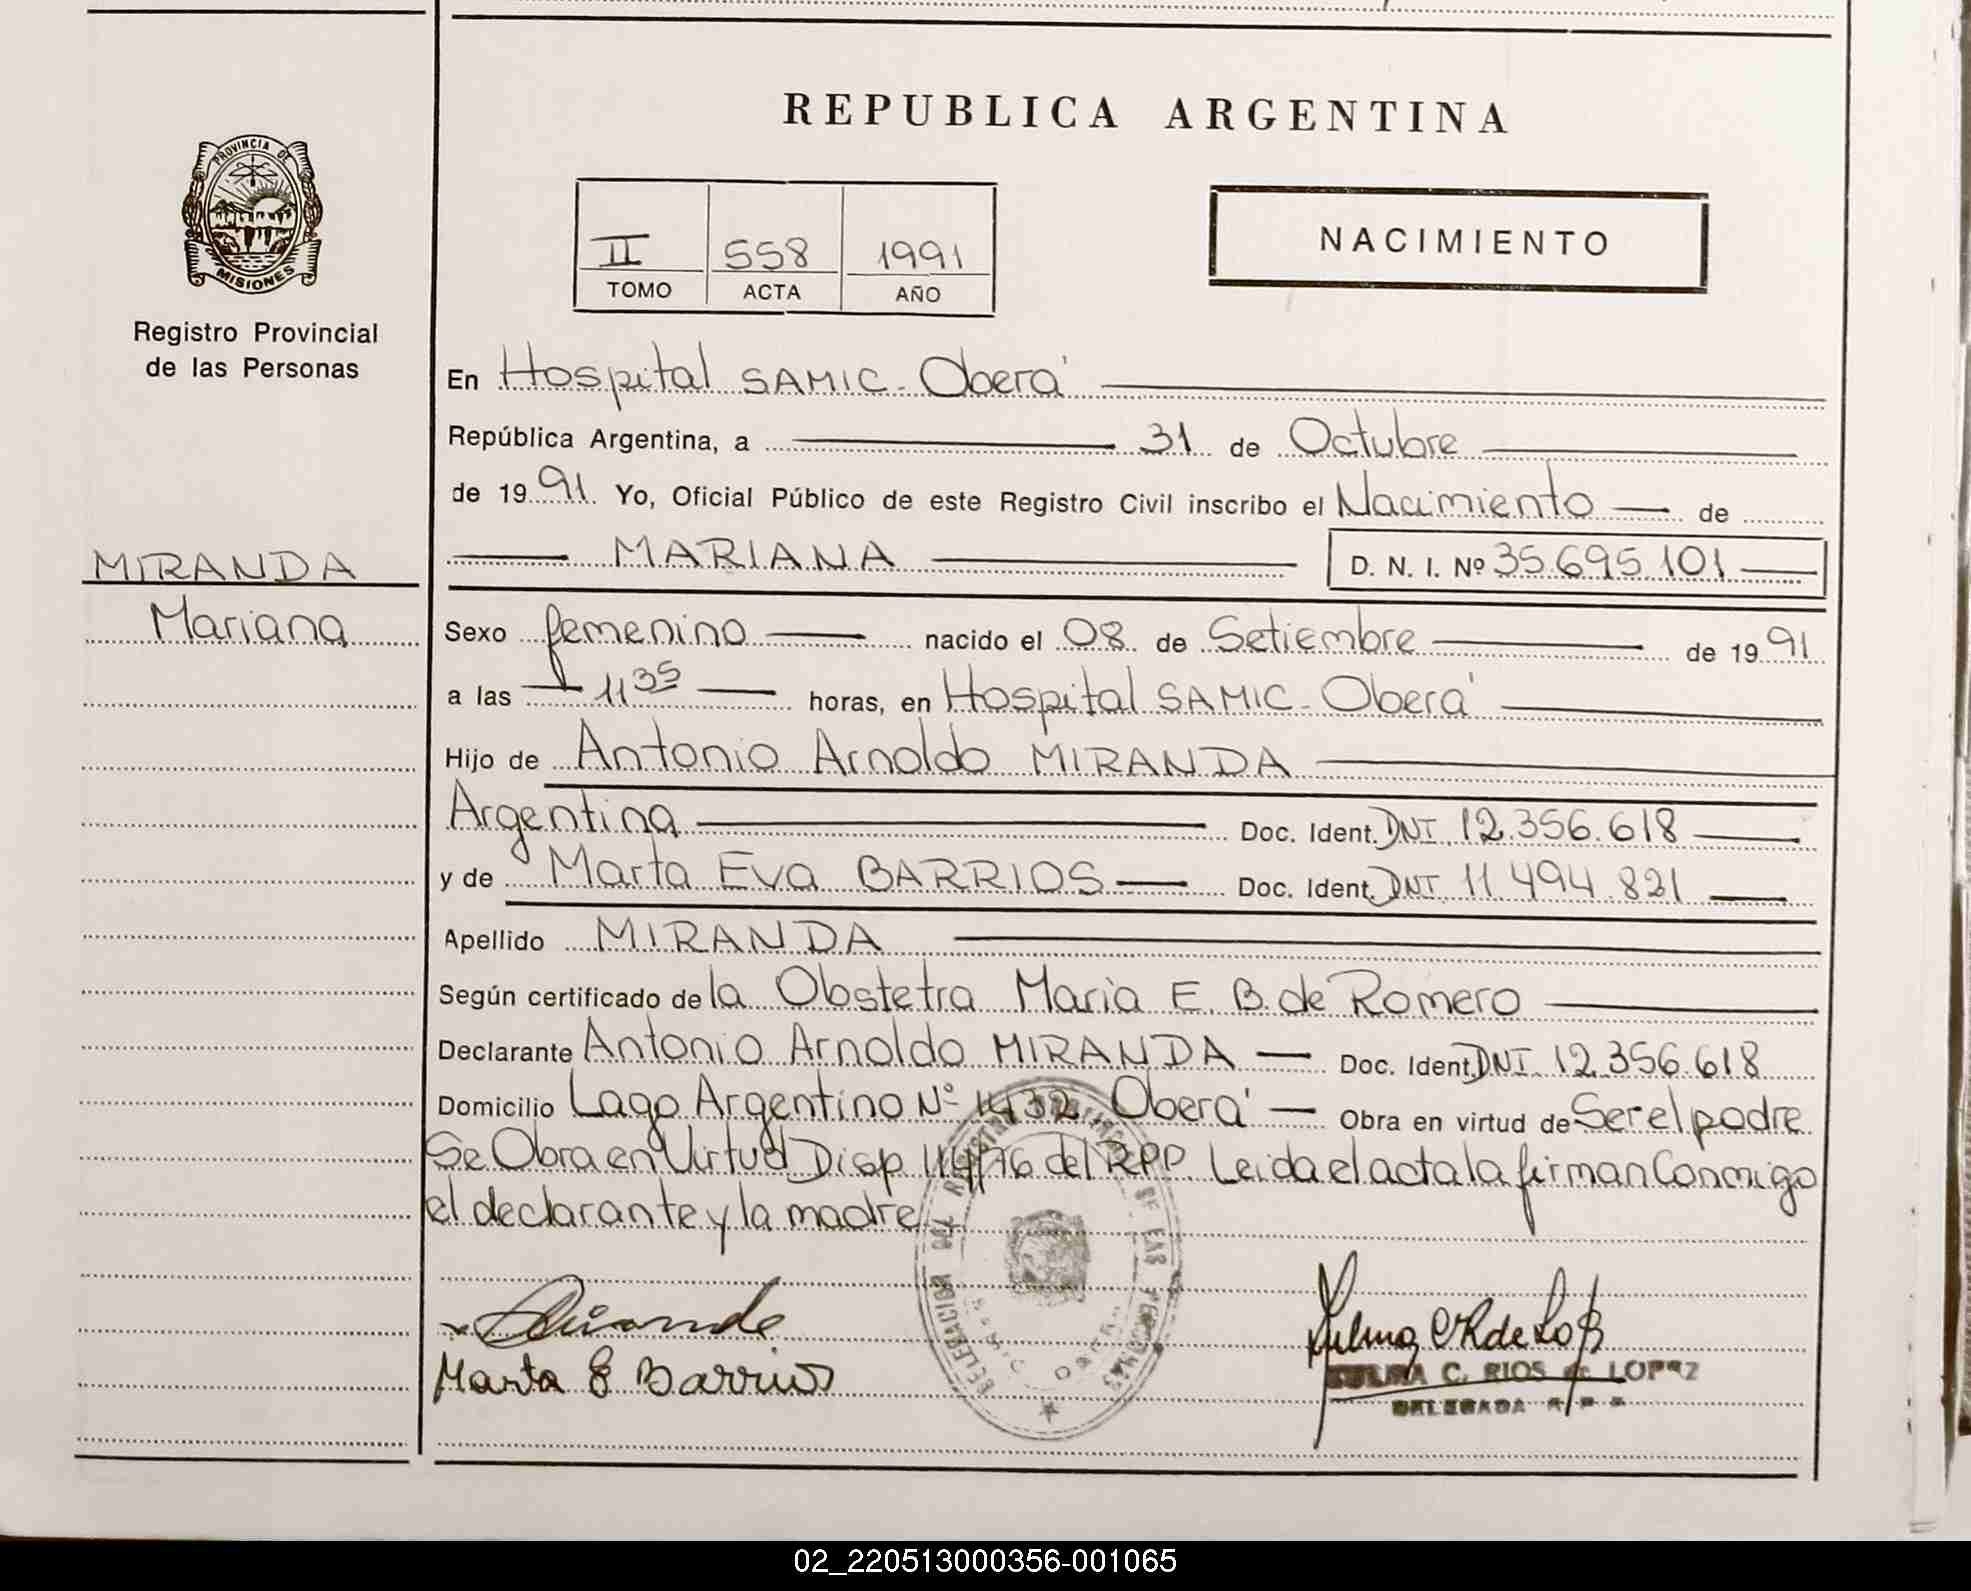 REPUBLICA ARGENTINA
PROVINCIA DE
MISIONES
Registro Provincial
de las Personas
II 558 1991
TOMO ACTA AÑO
NACIMIENTO
En Hospital SAMIC - Oberá
República Argentina, a 31 de Octubre
de 1991 Yo, Oficial Público de este Registro Civil inscribo el Nacimiento de
MARIANA D. N. I. Nº 35.695.101
MIRANDA
Mariana
Sexo femenino nacido el 08 de Setiembre de 1991
a las 11 35 horas, en Hospital SAMIC - Oberá
Hijo de Antonio Arnoldo MIRANDA
Argentina Doc. Ident. DNI 12.356.618
y de Marta Eva BARRIOS Doc. Ident. DNI 11.494.821
Apellido MIRANDA
Según certificado de la Obstetra Maria E. B. de Romero
Declarante Antonio Arnoldo MIRANDA Doc. Ident. DNI 12.356.618
Domicilio Lago Argentino Nº 1432 Oberá Obra en virtud de Ser el padre
Se Obra en Virtud Disp 114/76 del RPP Leida el acta la firman Conmigo
el declarante y la madre
DELEGACION DEL REGISTRO PROVINCIAL DE LAS PERSONAS
Miranda
Marta E Barrios
C. RIOS de LOPEZ
DELEGADA R P P
02_220513000356-001065